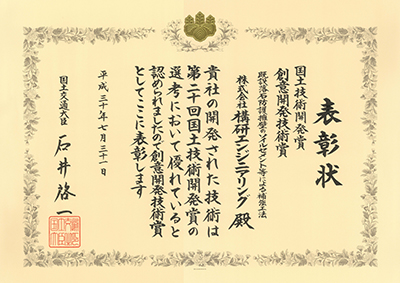 表彰状
国土技術開発賞
創意開発技術賞
既設落石防護擁壁のソイルセメント等による補強工法
株式会社構研エンジニアリング 殿
貴社の開発された技術は
第二十回国土技術開発賞の
選考において優れていると
認められましたので創意開発技術賞
としてここに表彰します
平成三十年七月三十一日
国土交通大臣 石井啓一